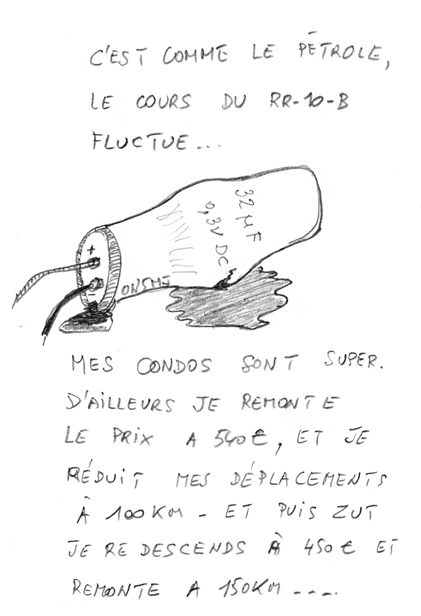 C'EST COMME LE PÉTROLE,
LE COURS DU RR-10-B
FLUCTUE...
32 µF
0,3V DC
+
-
MES CONDOS SONT SUPER.
D'AILLEURS JE REMONTE
LE PRIX A 540€, ET JE
RÉDUIT MES DÉPLACEMENTS
À 100KM - ET PUIS ZUT
JE REDESCENDS À 450€ ET
REMONTE A 150KM ----